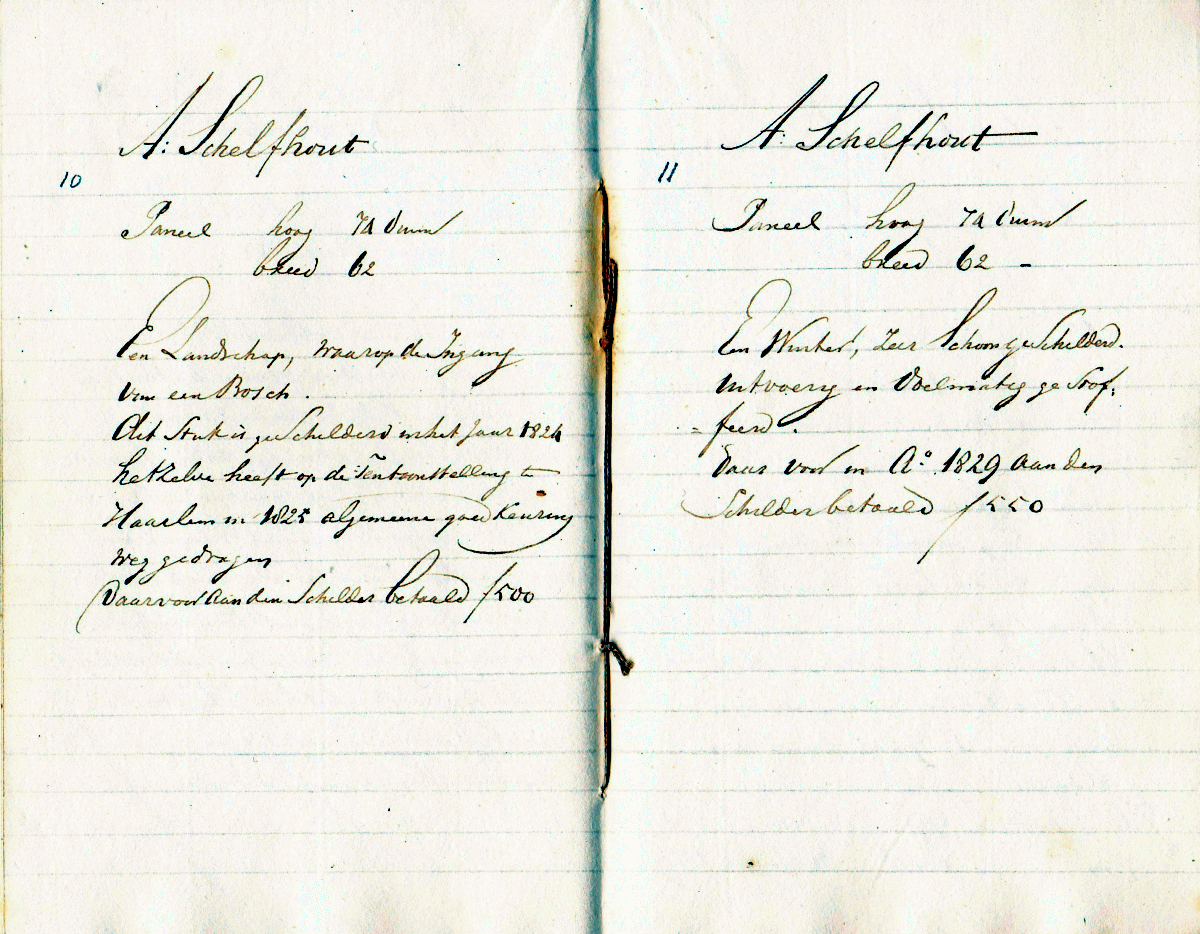 A: Schelfhout
10
Paneel hoog 74 duim
breed 62
Een Landschap, waarop de Ingang
van een Bosch.
dit Stuk is geSchilderd in het Jaar 1824
hetzelve heeft op de Tentoonstelling te
Haarlem in 1825 algemeene goed Keuring
weg gedragen
Daarvoor aan den Schilder betaald f500
A: Schelfhout
11
Paneel hoog 74 duim
breed 62 -
Een Winter, zeer Schoon geSchilderd.
uitvoerig en doelmatig ge Stof:
= feerd.
daar voor in A° 1829 aan den
Schilder betaald f 550